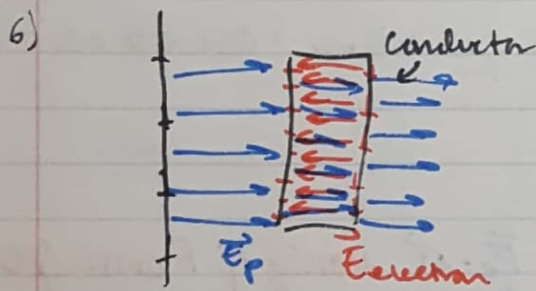 6)
conductor
E⃗p
E⃗electron